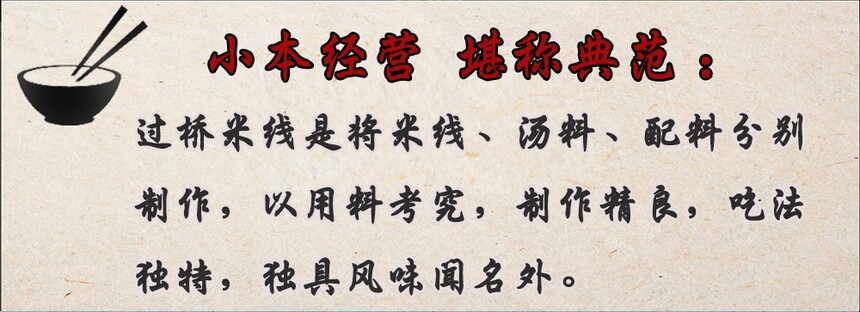 小本经营 堪称典范：
过桥米线是将米线、汤料、配料分别
制作，以用料考究，制作精良，吃法
独特，独具风味闻名外。